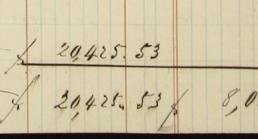 20,425.53
20,425.53 8,0